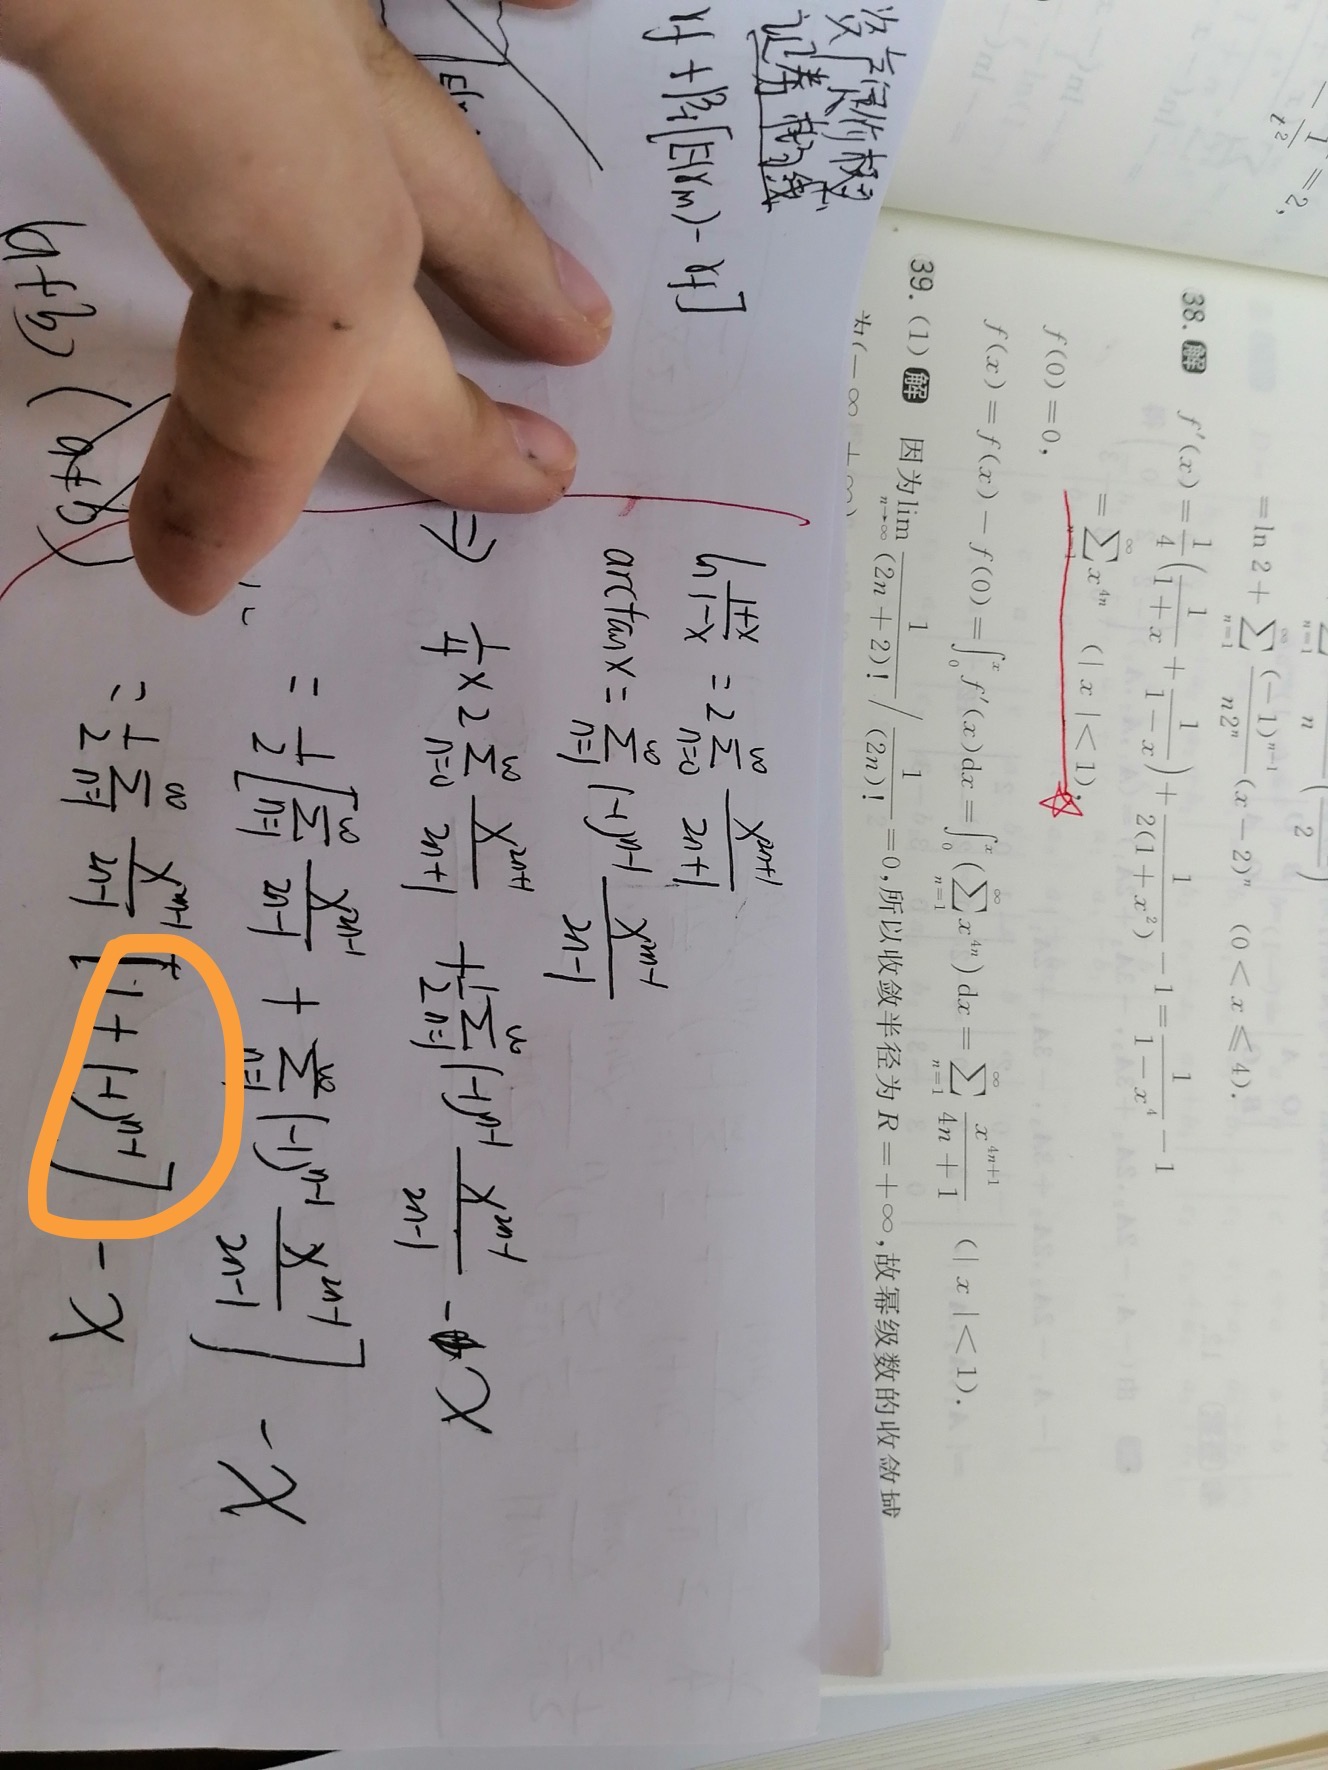 - 1/x² = 2,
= ln 2 + ∑_{n=1}^{∞} (-1)^{n-1}/(n2ⁿ) (x-2)ⁿ (0<x≤4).
38. 解 f′(x) = 1/4(1/(1+x) + 1/(1-x)) + 1/(2(1+x²)) - 1 = 1/(1-x⁴) - 1
= ∑_{n=1}^{∞} x^{4n} (|x|<1),
f(0)=0,
f(x) = f(x) - f(0) = ∫₀ˣ f′(x)dx = ∫₀ˣ (∑_{n=1}^{∞} x^{4n})dx = ∑_{n=1}^{∞} x^{4n+1}/(4n+1) (|x|<1).
39. (1) 解 因为 lim_{n→∞} 1/(2n+2)! / 1/(2n)! = 0,所以收敛半径为 R=+∞,故幂级数的收敛域
为(-∞,+∞)
证券
rf + β₁[E(rm) - rf]
ln (1+x)/(1-x) = 2 ∑_{n=0}^{∞} x^{2n+1}/(2n+1)
arctan x = ∑_{n=1}^{∞} (-1)^{n-1} x^{2n-1}/(2n-1)
⇒ 1/4 × 2 ∑_{n=0}^{∞} x^{2n+1}/(2n+1) + 1/2 ∑_{n=1}^{∞} (-1)^{n-1} x^{2n-1}/(2n-1) - x
= 1/2 [∑_{n=1}^{∞} x^{2n-1}/(2n-1) + ∑_{n=1}^{∞} (-1)^{n-1} x^{2n-1}/(2n-1)] - x
= 1/2 ∑_{n=1}^{∞} x^{2n-1}/(2n-1) [1 + (-1)^{n-1}] - x
(a+b)